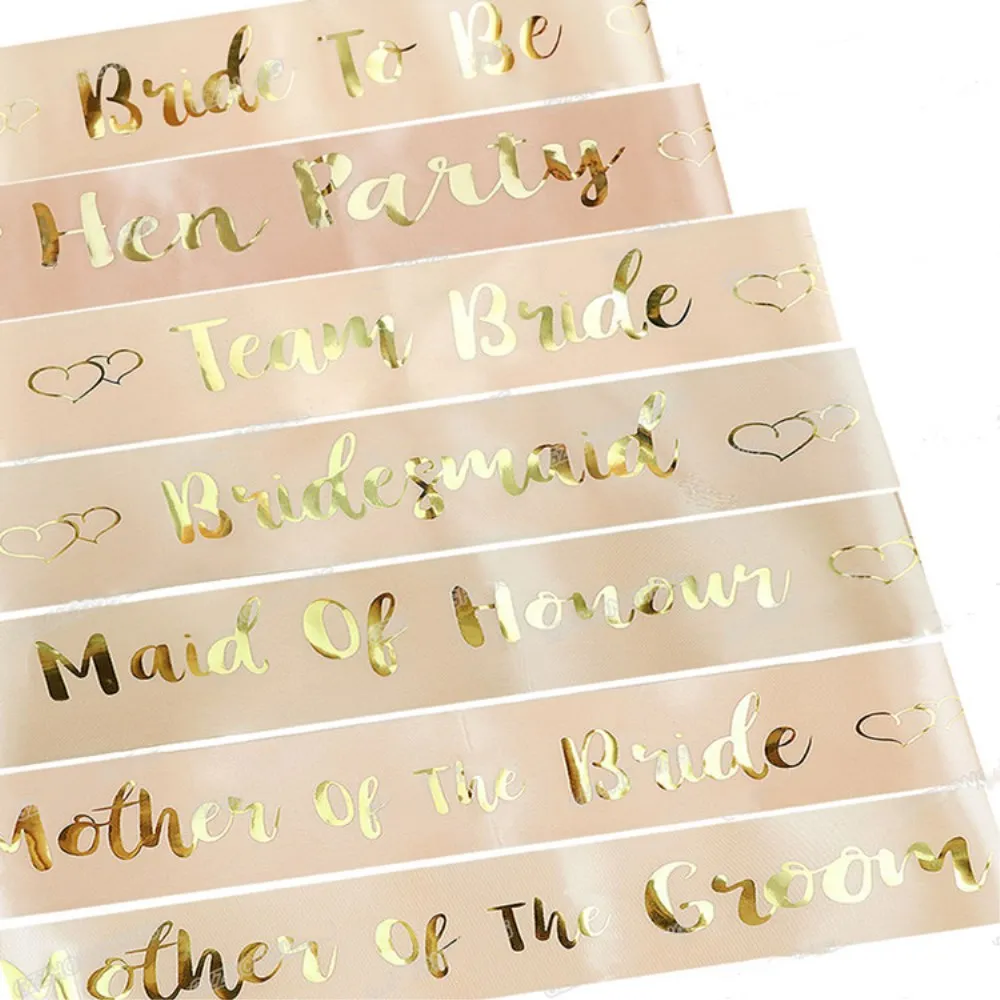 Bride To Be
Hen Party
Team Bride
Bridesmaid
Maid Of Honour
Mother Of The Bride
Mother Of The Groom